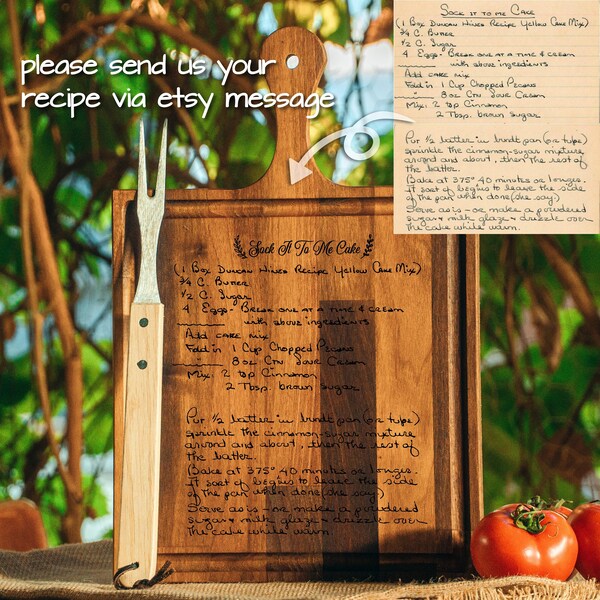 please send us your
recipe via etsy message
Sock it to me Cake
(1 Box Duncan Hines Recipe Yellow Cake Mix)
3/4 C. Butter
1/2 C. Sugar
4 Eggs - Break one at a time & cream
with above ingredients
Add cake mix
Fold in 1 Cup Chopped Pecans
8 oz Ctn Sour Cream
Mix: 2 tsp Cinnamon
2 Tbsp. brown sugar
Put 1/2 batter in bundt pan (or tube)
sprinkle the cinnamon-sugar mixture
around and about, then the rest of
the batter.
Bake at 375° 40 minutes or longer.
It sort of begins to leave the side
of the pan when done (she say)
Serve as is - or make a powdered
sugar & milk glaze & drizzle over
the cake while warm.
Sock It To Me Cake
(1 Box Duncan Hines Recipe Yellow Cake Mix)
3/4 C. Butter
1/2 C. Sugar
4 Eggs - Break one at a time & cream
with above ingredients
Add cake mix
Fold in 1 Cup Chopped Pecans
8 oz Ctn Sour Cream
Mix: 2 tsp Cinnamon
2 Tbsp. brown sugar
Put 1/2 batter in bundt pan (or tube)
sprinkle the cinnamon-sugar mixture
around and about, then the rest of
the batter.
Bake at 375° 40 minutes or longer.
It sort of begins to leave the side
of the pan when done (she say)
Serve as is - or make a powdered
sugar & milk glaze & drizzle over
the cake while warm.